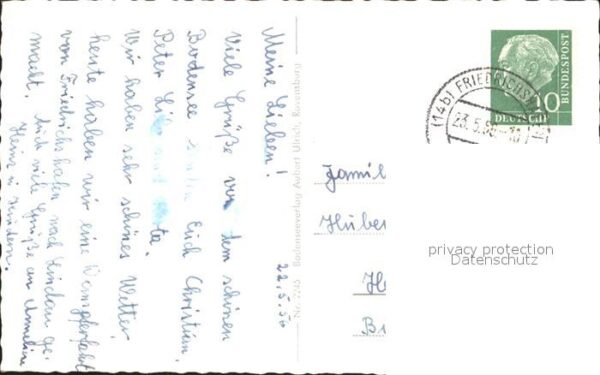 22.5.56
Meine Lieben!
Viele Grüße von dem schönen
Bodensee Euch Christian,
Peter,
Wir haben sehr schönes Wetter
heute haben wir eine Dampferfahrt
von Friedrichshafen nach Lindau ge-
macht. Auch viele Grüße an Annelies
Heinz u. Kinder.
Nr. 7245 Bodenseeverlag Aubert Ulrich, Ravensburg
(14b) FRIEDRICHSH
23.5.56
10
DEUTSCHE
BUNDESPOST
Famil
Huber
H
B
privacy protection
Datenschutz